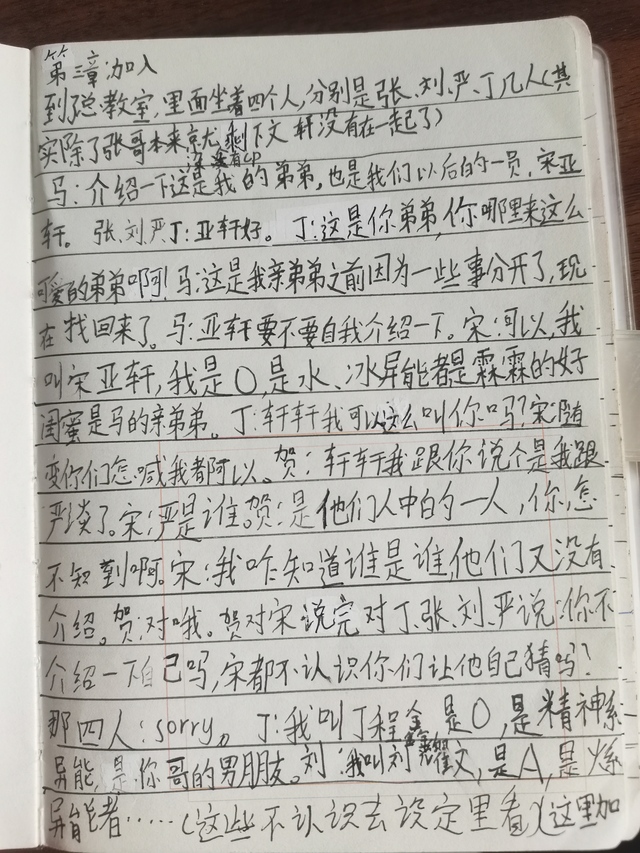 第三章:加入
到了总教室,里面坐着四个人,分别是张、刘、严、丁几人(其
实除了张哥本来就没有CP剩下文轩没有在一起了)
马:介绍一下这是我的弟弟,也是我们以后的一员,宋亚
轩。张、刘、严、丁:亚轩好。丁:这是你弟弟,你哪里来这么
可爱的弟弟啊!马:这是我亲弟弟之前因为一些事分开了,现
在找回来了。马:亚轩要不要自我介绍一下。宋:可以,我
叫宋亚轩,我是O,是水、冰异能者是霖霖的好
闺蜜是马的亲弟弟。丁:轩轩我可以这么叫你吗?宋:随
变你们怎喊我都阿以。贺:轩轩我跟你说个是我跟
严谈了。宋:严是谁。贺:是他们人中的一人,你,怎
不知到啊。宋:我咋知道谁是谁,他们又没有
介绍。贺:对哦。贺对宋说完对丁、张、刘、严说:你不
介绍一下自己吗,宋都不认识你们让他自己猜吗?
那四人:sorry。丁:我叫丁程鑫是O,是精神系
异能,是你哥的男朋友。刘:我叫刘耀文,是A,是火系
异能者……(这些不认识去设定里看)(这里加